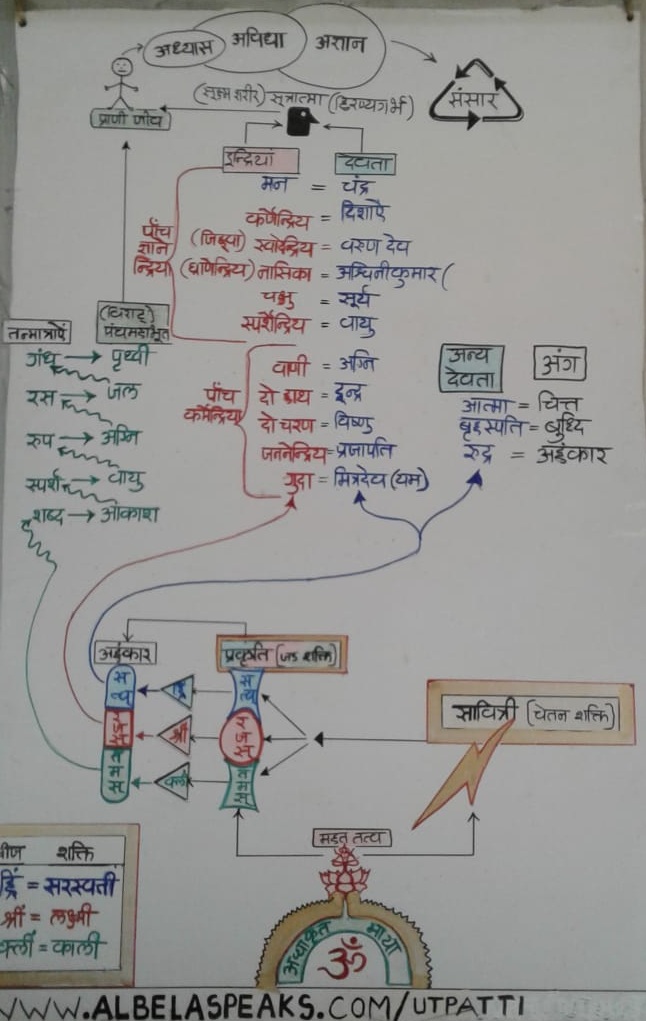 अध्यास अविधा अज्ञान
संसार
(सूक्ष्म शरीर) सूत्रात्मा (हिरण्यगर्भ)
प्राणी जीव
इन्द्रियां देवता
मन = चंद्र
कर्णेन्द्रिय = दिशाऐ
(जिह्वा) स्वादेन्द्रिय = वरुण देव
(घ्राणेन्द्रिय) नासिका = अश्विनीकुमार (
चक्षु = सूर्य
स्पर्शेन्द्रिय = वायु
पाँच
ज्ञाने
न्द्रिया
वाणी = अग्नि
दो हाथ = इन्द्र
दो चरण = विष्णु
जननेन्द्रिय = प्रजापति
गुदा = मित्रदेव (यम)
पाँच
कर्मेन्द्रिया
(विराट)
तन्मात्राऐं पंचमहाभूत
गंध → पृथ्वी
रस → जल
रुप → अग्नि
स्पर्श → वायु
शब्द → आकाश
अन्य
देवता
अंग
आत्मा = चित्त
बृहस्पति = बुध्दि
रुद्र = अहंकार
अहंकार
प्रकृति (जड शक्ति)
सत्व
रजस
तमस
श्रीं
क्लीं
सत्व
रजस
तमस
सावित्री (चेतन शक्ति)
महत तत्व
अव्याकृत माया
ॐ
बीज शक्ति
ह्रिं = सरस्वती
श्रीं = लक्ष्मी
क्लीं = काली
WWW.ALBELASPEAKS.COM/UTPATTI